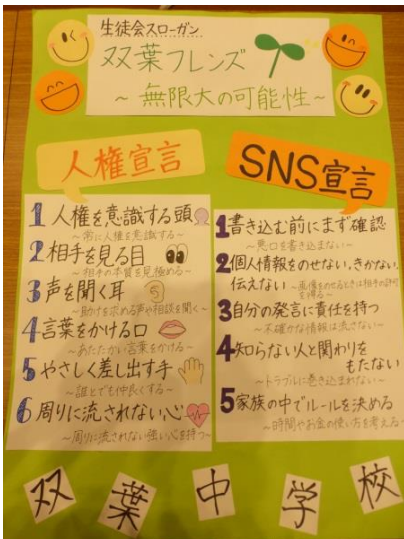 生徒会スローガン
双葉フレンズ
～無限大の可能性～
人権宣言
1 人権を意識する頭
～常に人権を意識する～
2 相手を見る目
～相手の本質を見極める～
3 声を聞く耳
～助けを求める声や相談を聞く～
4 言葉をかける口
～あたたかい言葉をかける～
5 やさしく差し出す手
～誰とでも仲良くする～
6 周りに流されない心
～周りに流されない強い心を持つ～
SNS宣言
1 書き込む前にまず確認
～悪口を書き込まない～
2 個人情報をのせない、きかない、
伝えない ～画像をのせるときは相手の許可
を得る～
3 自分の発言に責任を持つ
～不確かな情報は流さない～
4 知らない人と関わりを
もたない
～トラブルに巻き込まれない～
5 家族の中でルールを決める
～時間やお金の使い方を考える～
双葉中学校